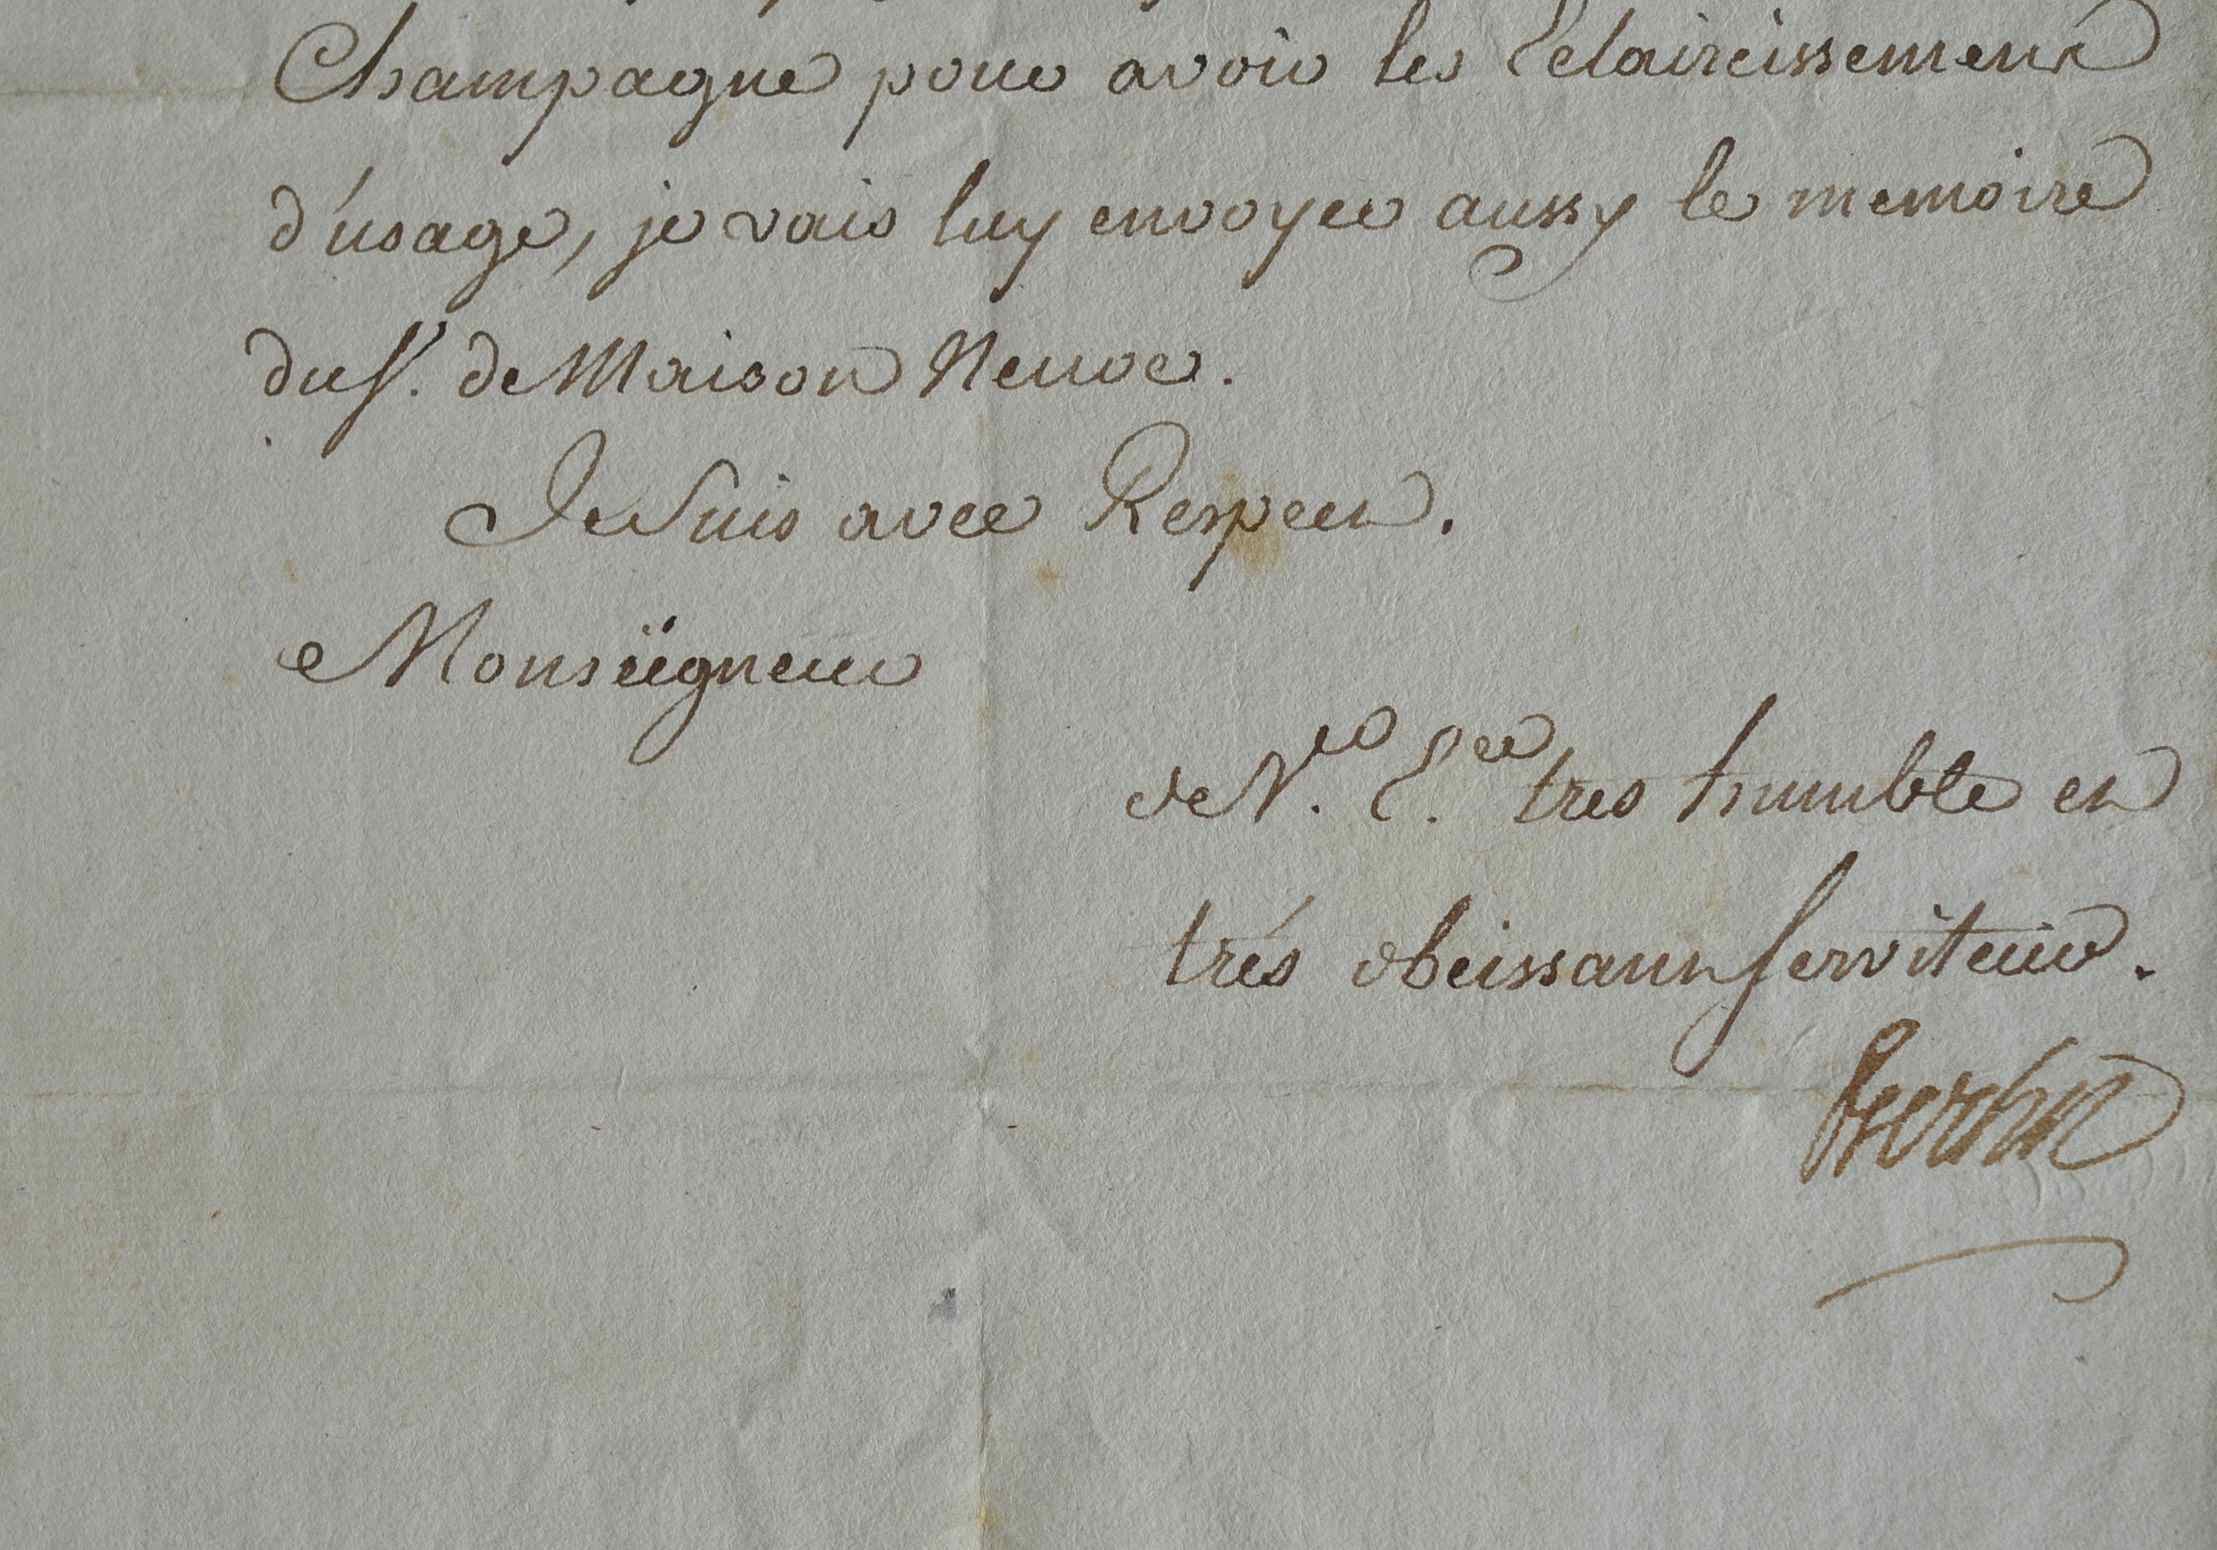 Champagne pour avoir les Eclaircissement
d'usage, je vais luy envoyer aussy le memoire
du Sr. de Maison Neuve.
Je Suis avec Respect.
Monseigneur
de V.re E.ce tres humble et
trés obeissant Serviteur.